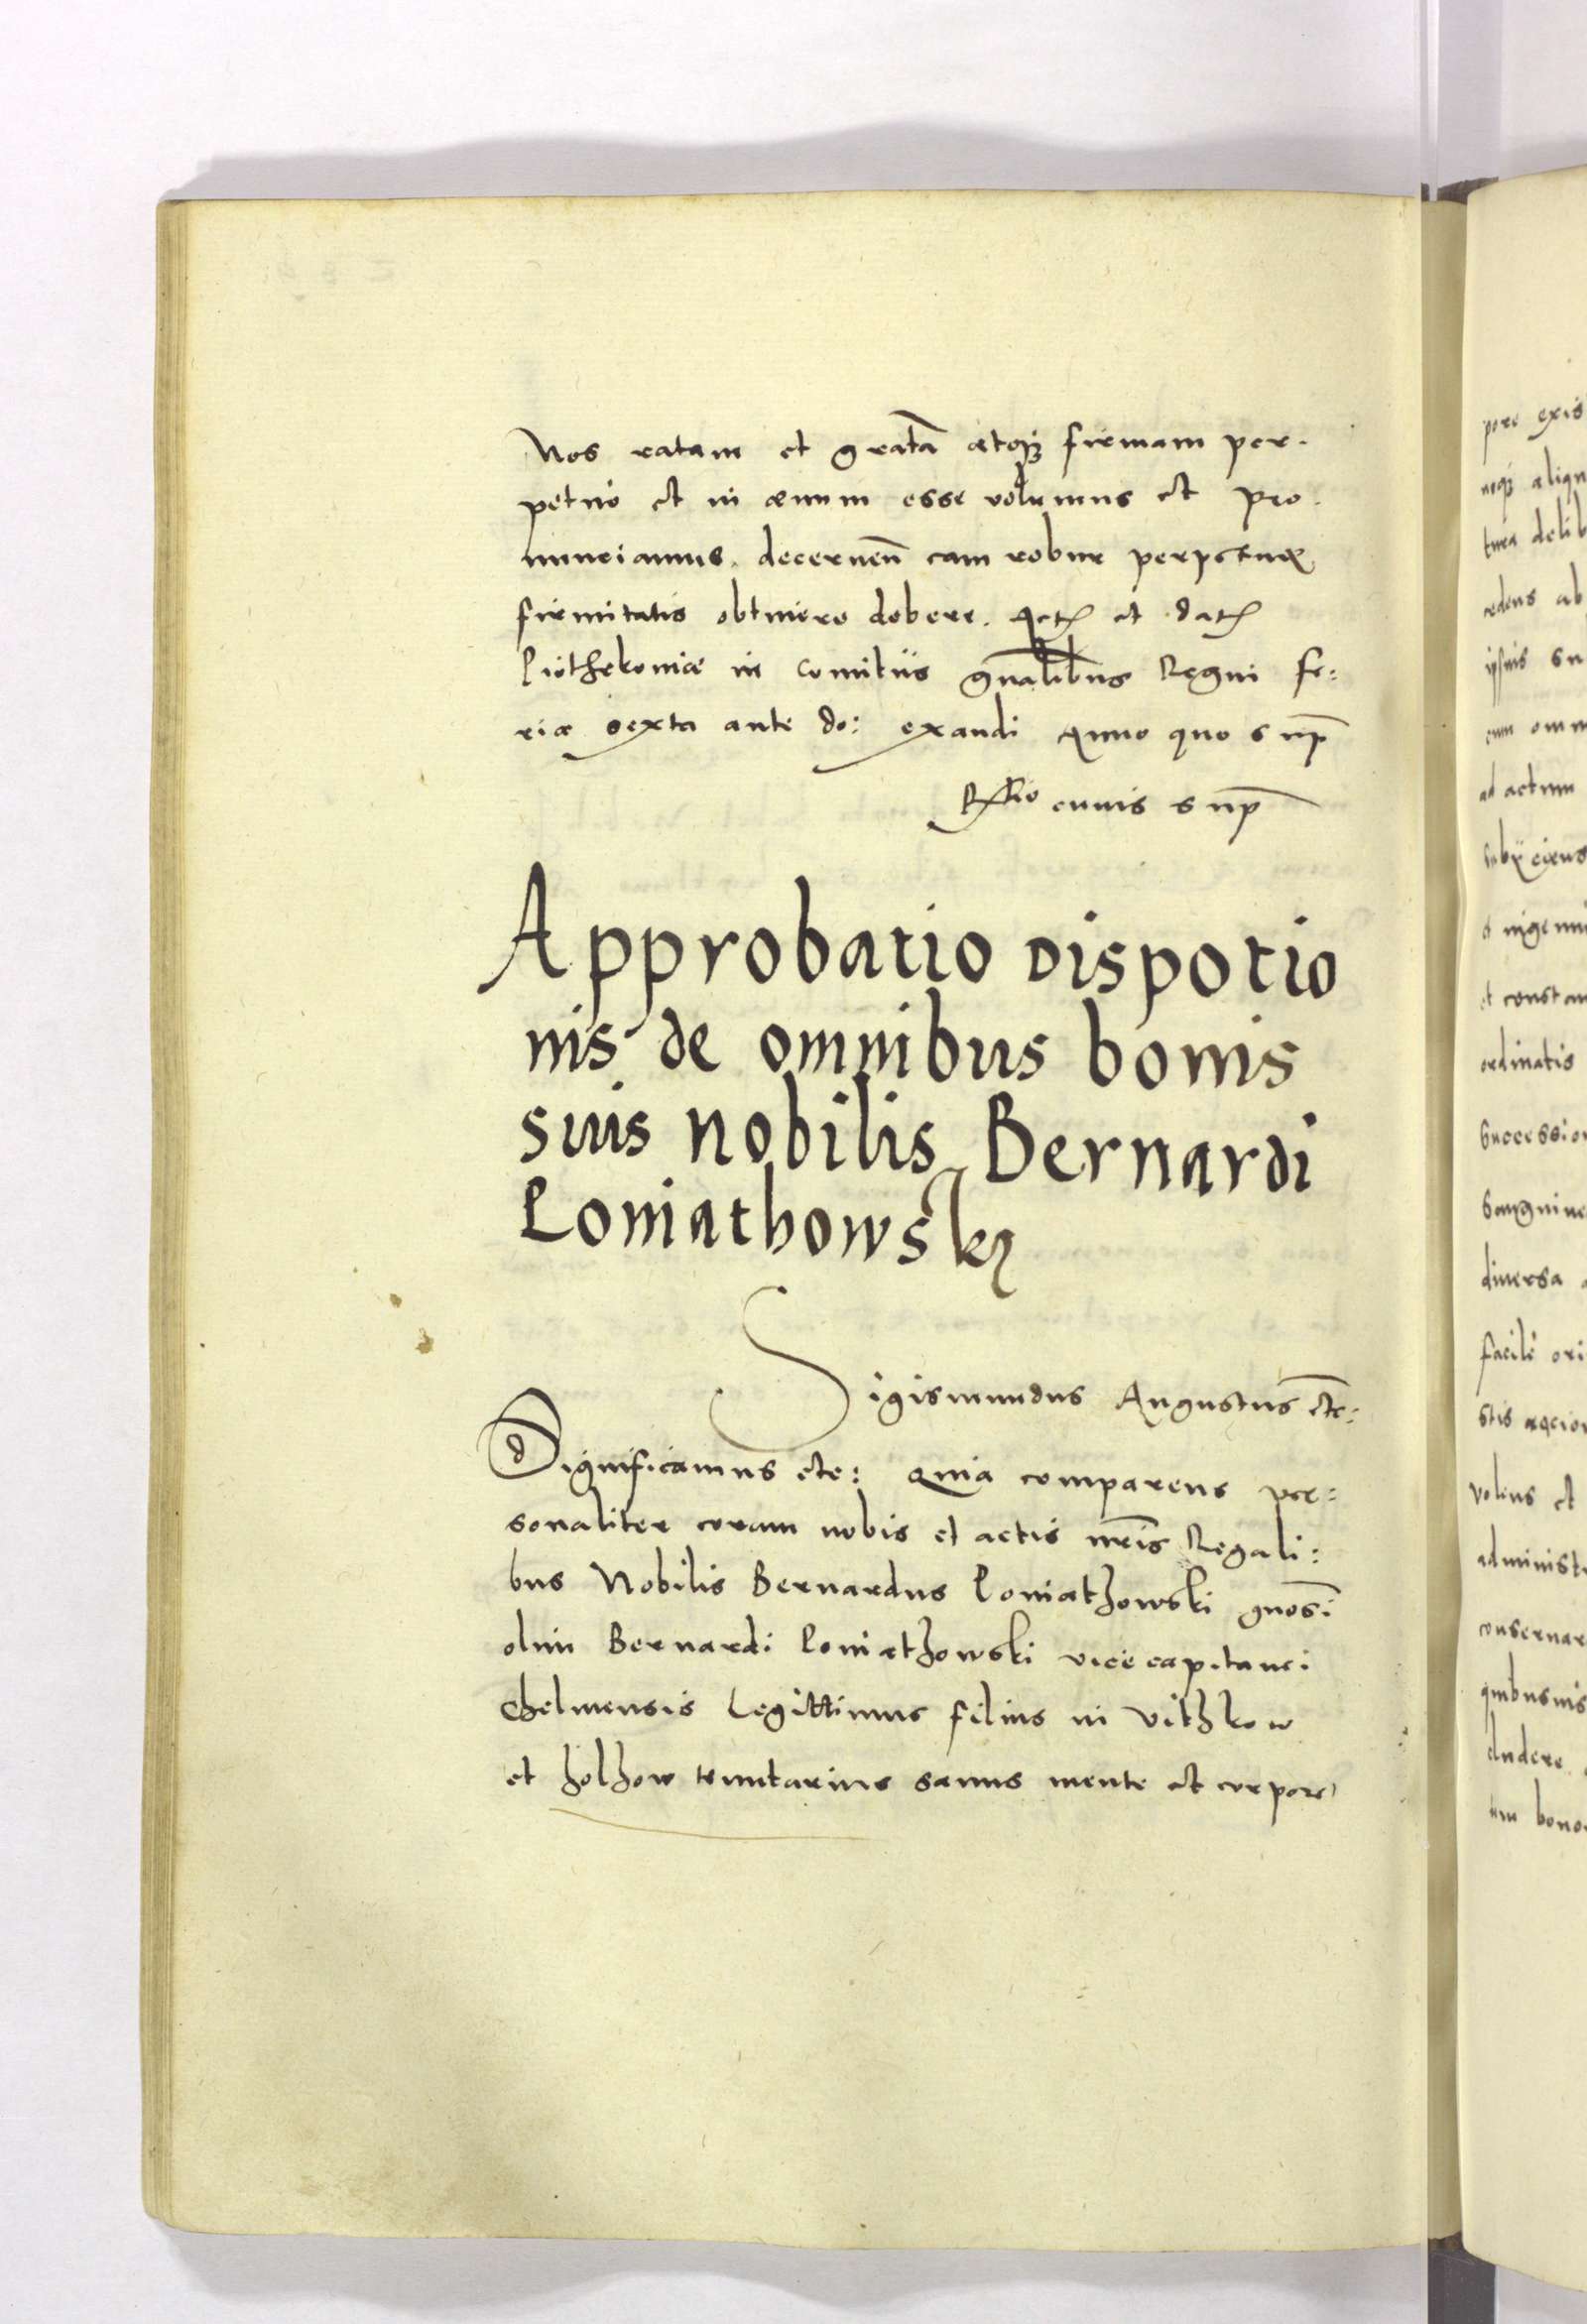 Nos ratam et grata atq3 firmam per.
petuo et in ævum esse volumus et pro.
nunciamus. decernen eam robur perpetuæ
firmitatis obtinere debere. Act et dat
Piothrkoviæ in comitiis gnalibus Regni fe:
ria sexta ante do: exaudi Anno quo sup
Rlio cuius sup
Approbatio dispotio
nis de omnibus bonis
suis nobilis Bernardi
Poniathowsky
Sigismundus Augustus etc:
Significamus etc: Quia comparens per:
sonaliter coram nobis et actis nris Regali:
bus Nobilis Bernardus Poniathowski gnosi
olim Bernardi Poniathowski vice capitanei
Chelmensis Legittimus filius in Vithkow
et holhow tenutarius sanus mente et corpore
pore exis
noq3 aliqu
tura delib
cedens ab
ipsius su
cum omn
ad actum
subiiciens
et constan
ordinatis
Successio
Sanguine
diversa
facile ori
volens et
administr
conservar
quibusvis
cludere
um bono